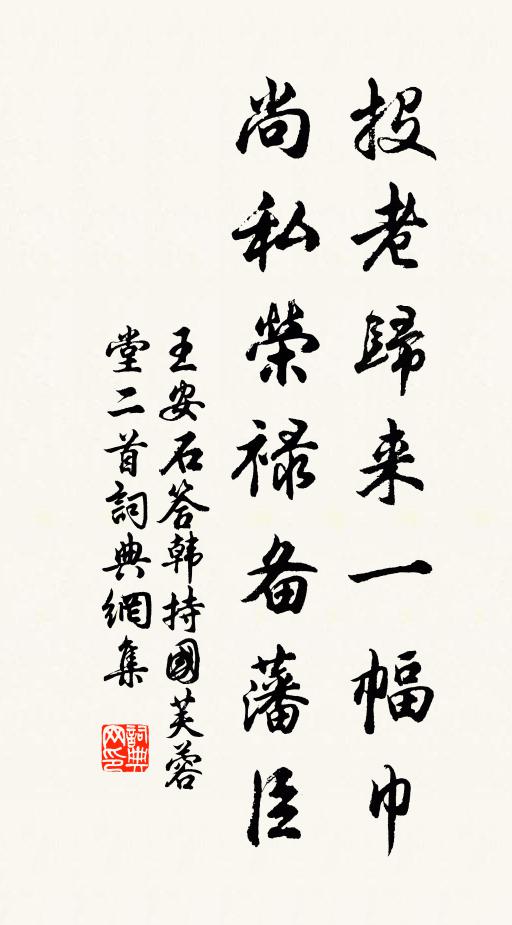 投老歸来一幅巾
尚私榮禄备藩臣
王安石答韩持國芙蓉
堂二首詞典網集
詞典网印